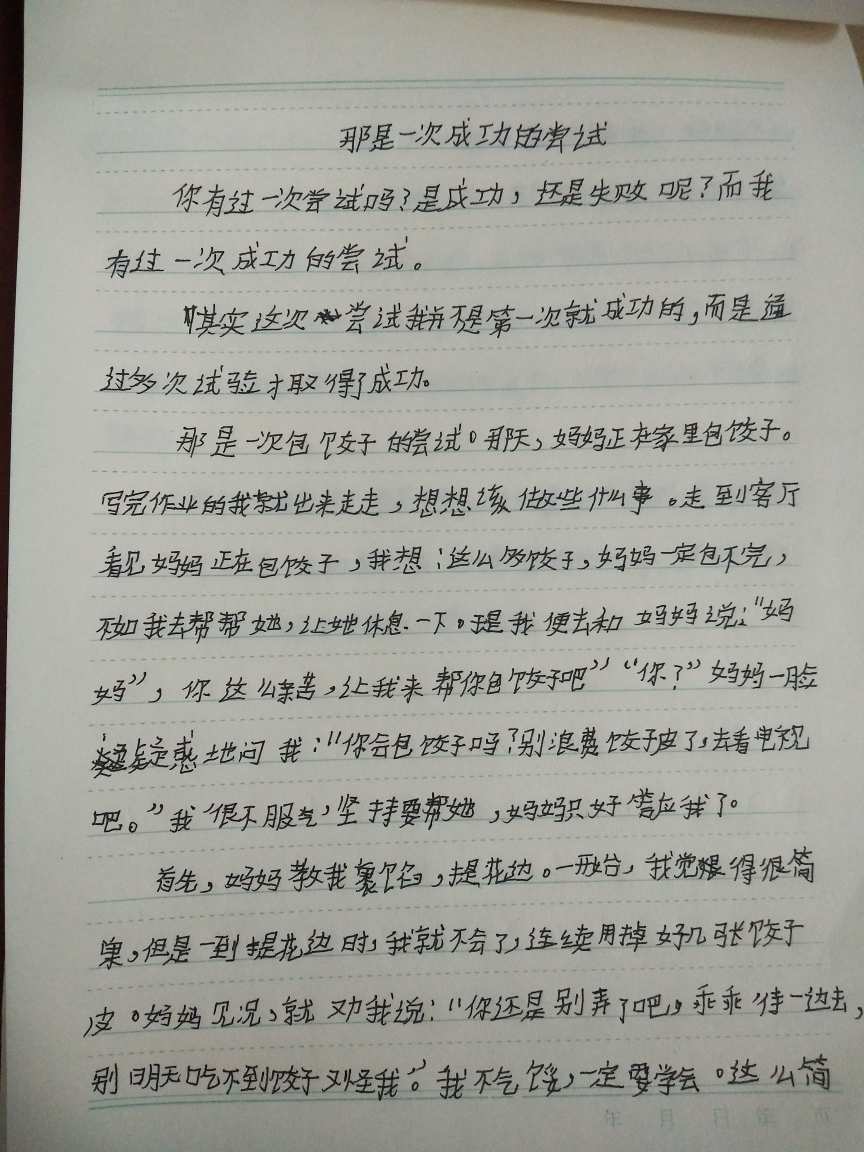 那是一次成功的尝试
你有过一次尝试吗？是成功，还是失败呢？而我
有过一次成功的尝试。
其实这次尝试我并不是第一次就成功的，而是通
过多次试验才取得了成功。
那是一次包饺子的尝试。那天，妈妈正在家里包饺子。
写完作业的我就出来走走，想想该做些什么事。走到客厅
看见妈妈正在包饺子，我想：这么多饺子，妈妈一定包不完，
不如我去帮帮她，让她休息一下。于是我便去和妈妈说：“妈
妈”，你这么辛苦，让我来帮你包饺子吧”“你？”妈妈一脸
疑惑地问我：“你会包饺子吗？别浪费饺子皮了，去看电视
吧。”我很不服气，坚持要帮她，妈妈只好答应我了。
首先，妈妈教我裹馅，提花边。一开始，我觉得很简
单，但是一到提花边时，我就不会了，连续用掉好几张饺子
皮。妈妈见况，就劝我说：“你还是别弄了吧，乖乖待一边去，
别明天吃不到饺子又怪我”。我不气馁，一定要学会。这么简